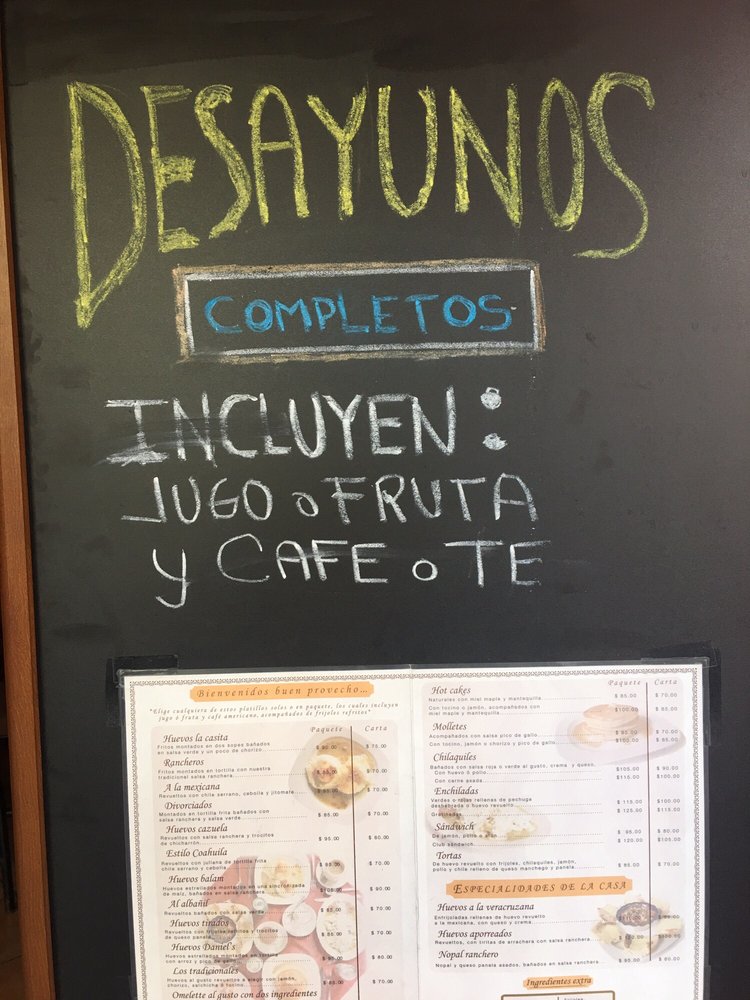 DESAYUNOS
COMPLETOS
INCLUYEN:
JUGO o FRUTA
y CAFE o TE
Bienvenidos buen provecho...
"Elige cualquiera de estos platillos solos o en paquete, los cuales incluyen
jugo ó fruta y café americano, acompañados de frijoles refritos"
Paquete Carta
Huevos la casita
Fritos montados en dos sopes bañados
en salsa verde y un poco de chorizo. $ 90.00 $ 75.00
Rancheros
Fritos montados en tortilla con nuestra
tradicional salsa ranchera. $ 70.00
A la mexicana
Revueltos con chile serrano, cebolla y jitomate. $ 70.00
Divorciados
Montados en tortilla frita bañados con
salsa ranchera y salsa verde. $ 85.00 $ 70.00
Huevos cazuela
Revueltos con salsa ranchera y trocitos
de chicharrón. $ 95.00 $ 80.00
Estilo Coahuila
Revueltos con juliana de tortilla frita
chile serrano y cebolla $ 85.00 $ 70.00
Huevos balam
Huevos estrellados montados en una sincronizada
de maíz, bañados en salsa ranchera $ 90.00
Al albañil
Revueltos bañados con salsa verde $ 70.00
Huevos tirados
Revueltos con frijoles refritos y trocitos
de queso panela $ 70.00
Huevos Daniel's
Huevos estrellados montados en tortilla
con arroz y pico de gallo $ 80.00
Los tradicionales
Huevos al gusto revueltos a elegir con jamón,
chorizo, salchicha ó tocino. $ 85.00 $ 70.00
Omelette al gusto con dos ingredientes
Paquete Carta
Hot cakes
Naturales con miel maple y mantequilla $ 85.00 $ 70.00
Con tocino o jamón, acompañados con
miel maple y mantequilla $100.00 $ 85.00
Molletes
Acompañados con salsa pico de gallo $ 85.00 $ 70.00
Con tocino, jamón u chorizo y pico de gallo $100.00 $ 85.00
Chilaquiles
Bañados con salsa roja o verde al gusto, crema y queso.
Con huevo ó pollo $105.00 $ 90.00
Con carne asada $115.00 $100.00
Enchiladas
Verdes o rojas rellenas de pechuga
deshebrada o huevo revuelto $ 115.00 $100.00
Gratinadas $ 125.00 $115.00
Sándwich
De jamón, pollo $ 95.00 $ 80.00
Club sándwich $ 120.00 $105.00
Tortas
De huevo revuelto con frijoles, chilaquiles, jamón,
pollo y chile relleno de queso manchego y panela. $ 85.00 $ 70.00
ESPECIALIDADES DE LA CASA
Huevos a la veracruzana
Enfrijoladas rellenas de huevo revuelto
a la mexicana, con queso y crema
Huevos aporreados
Revueltos, con tiritas de arrachera con salsa ranchera.
Nopal ranchero
Nopal y queso panela asados, bañados en salsa ranchera
Ingredientes extra